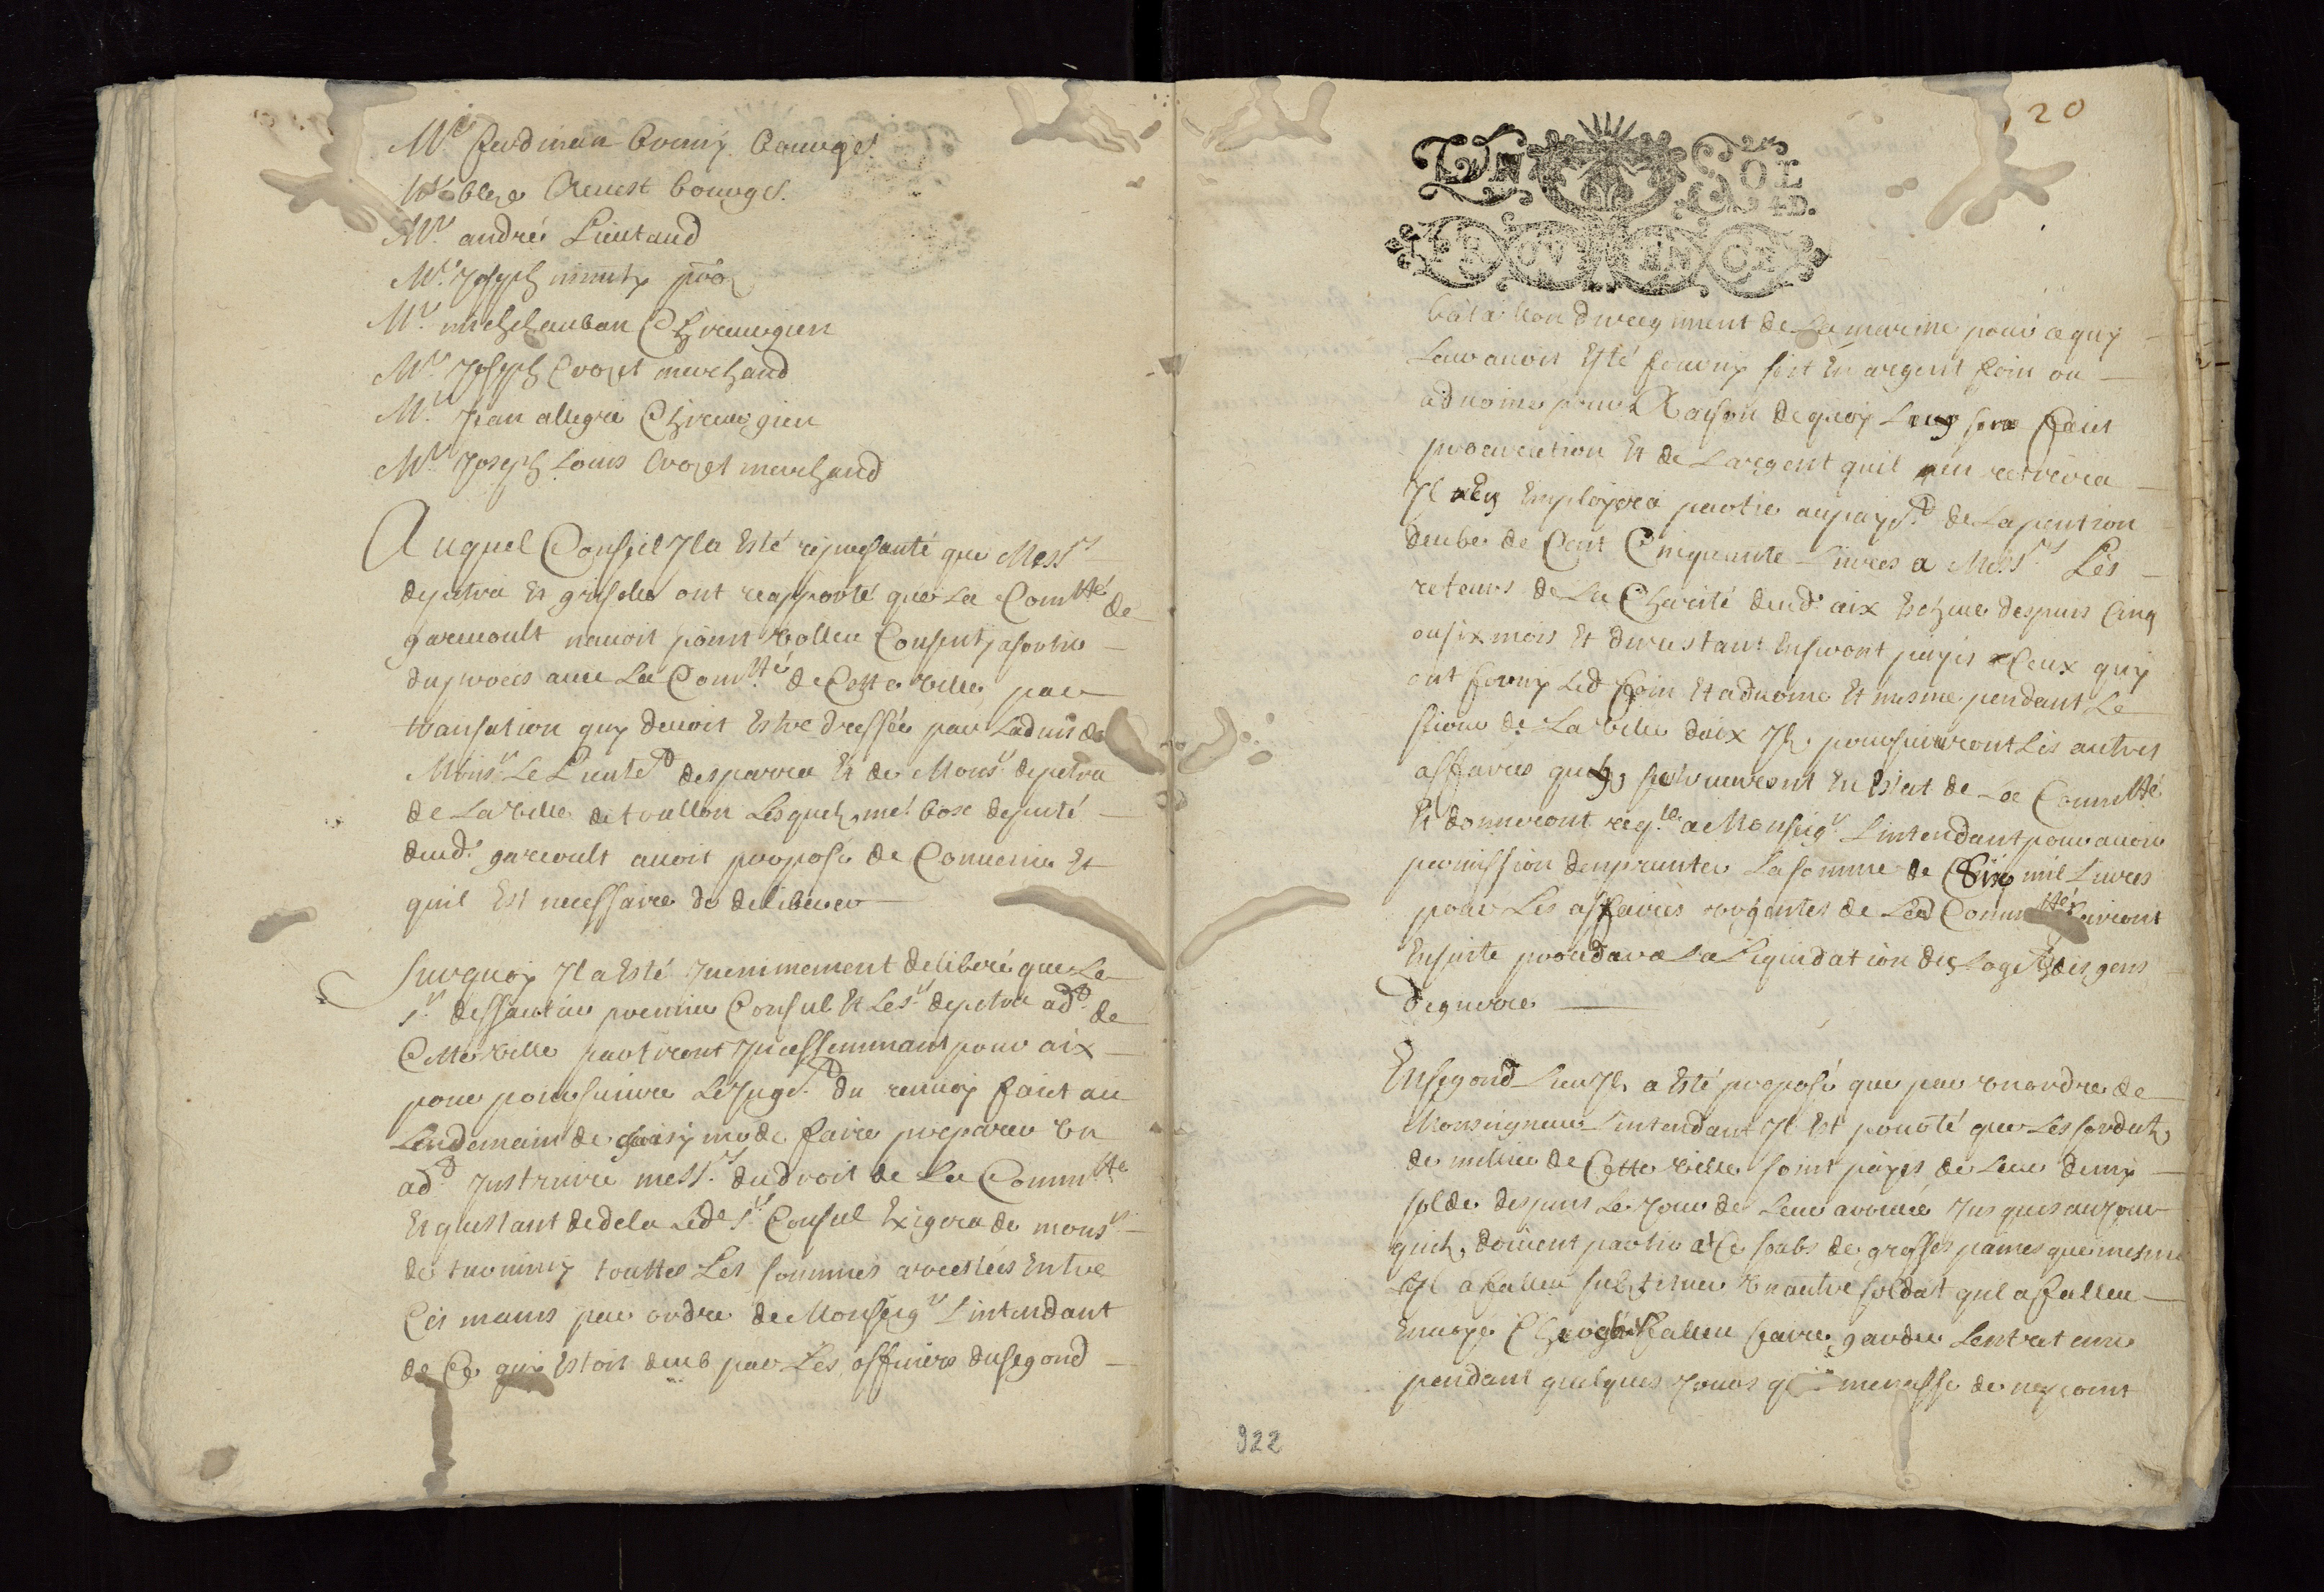 Mr ferdinan bremy bourgs.
blese Aeurst bourgs.
Mr. andré Lieutaud
Mr. Joseph mutz por
Mr. michel auban Chireurgien
Mr. Joseph Croset marchand
Mr. Jean allegre Chireurgien
Mr. Joseph Louis Croset marchand
Auquel Conseil Il a Esté representé que Messrs
depetra Et griselle ont reapporté que La Comtté de
gareoult navoit point volleu Consentj a sortir
du procés avec La Comtté de Cette ville par
transation quy devoit Estre dressée par Ladvis de
Monsr. Le Lieutd desparra Et de Monsr. depetra
de La ville de toullon Lesquels me. bosc deputé
dud. gareoult avoit proposé de Convenir Et
quil Est necessaire de deliberer
Surquoy Il a Esté Junimement deliberé que Le
sr. dessautier premier Consul Et Le sr. depetra add. de
Cette ville partiront Incessemmant pour aix
pour poursuivre Le Jugd. du renvoy faict au
Lendemain de quasimodo faire preparer un
add. Instruire messrs. du droit de La Commtte
Et questant dedela Led. sr. Consul Exigera de monsr
de tuominy touttes Les sommes arrestées Entre
Ces mains par ordre de Monseigr Lintendant
de Ce quy Estoit deub par Les officiers du segond
20
UN SOL
4D.
PROVENCE
bataillon du regiment de La marine pour ce quy
Leur avoit Esté fourny soit En argent foin ou
advoine pour Raison de quoy Leur sera faict
procuration Et de Largent quil en retirera
Il En Employera partie au payd. de La pention
deube de Cent Cinquante Livres a Messrs. Les
reteurs de La Charité dud. aix Escheue despuis Cinq
ou six mois Et du restant En seront payés Ceux quy
ont forny Led foin Et advoine Et mesme pendant Le
sejour de La ville daix Ils poursuivront Les autres
affaires quils se trouveront En Estat de La Commtté
Et donneront reqte. a Monseigr. Lintendant pour avoir
permission demprunter La somme de Six mil Livres
pour Les affaires urgentes de Lad Commtté fairont
Ensuite proceder a La Liquidation des Logetz des gens
de guerre
En segond Lieu Il a Esté proposé que par un ordre de
Monseigneur Lintendant Il Est pourté que Les sordats
de milice de Cette ville soint payés de Leur demy
solde despuis Le Jour de Leur arivée Jusques au Jour
quils doivent partir a Ce soubs de grosses paines que mesme
Il a falleu substituer Un autre soldat quil a falleu
Envoye Cherché falleu faire garder Lentretenir
pendant quelques Jours q menasse de ney point
922